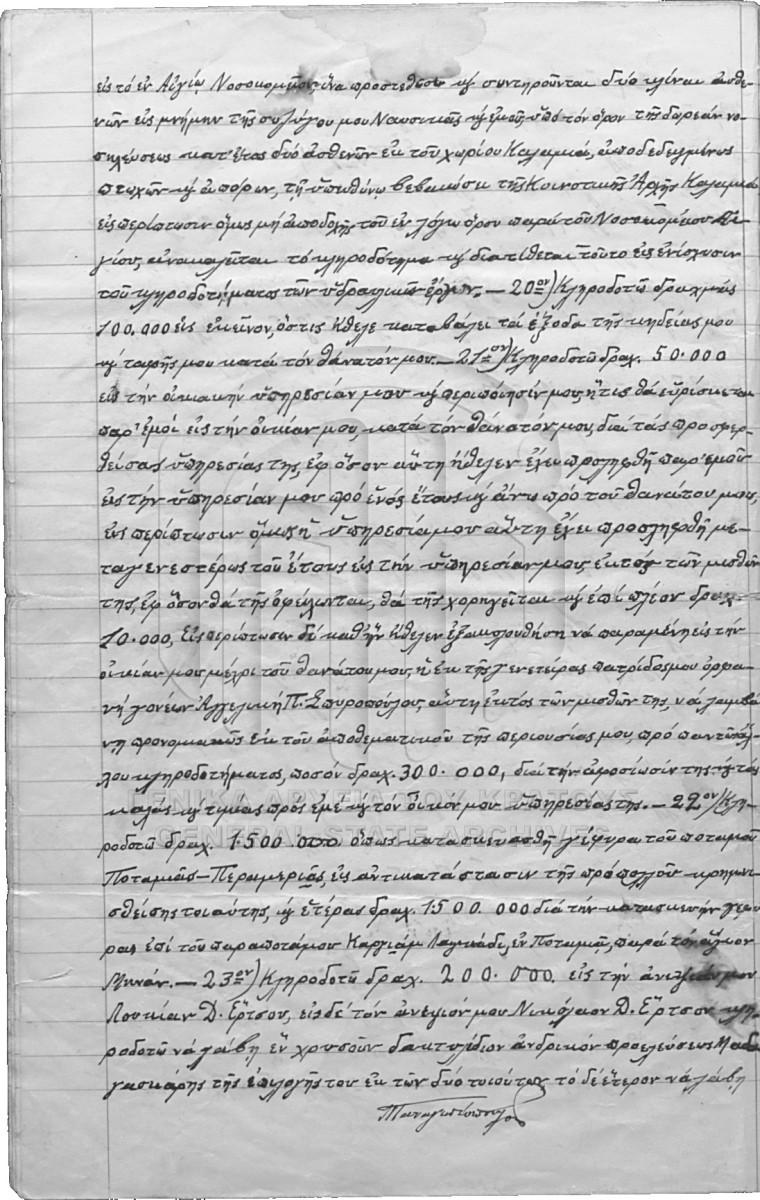 εἰς τό ἐν Αἰγίῳ Νοσοκομεῖον, ἵνα προστεθῶσι καί συντηροῦνται δύο κλίναι ἀσθε-
νῶν εἰς μνήμην τῆς συζύγου μου Ναυσικᾶς καί ἐμοῦ, ὑπό τόν ὅρον τῆς δωρεάν νο-
σηλεύσεως κατ' ἔτος δύο ἀσθενῶν ἐκ τοῦ χωρίου Καλαμιά, ἀποδεδειγμένως
πτωχῶν καί ἀπόρων, τῇ ὑπευθύνῳ βεβαιώσει τῆς Κοινοτικῆς Ἀρχῆς Καλαμιᾶς
εἰς περίπτωσιν ὅμως μή ἀποδοχῆς τοῦ ἐν λόγῳ ὅρου παρά τοῦ Νοσοκομείου Αἰ-
γίου, ἀνακαλεῖται τό κληροδότημα καί διατίθεται τοῦτο εἰς ἐνίσχυσιν
τοῦ κληροδοτήματος τῶν ὑδραυλικῶν ἔργων. — 20ον) Κληροδοτῶ δραχμάς
100.000 εἰς ἐκεῖνον, ὅστις ἤθελε καταβάλει τά ἔξοδα τῆς κηδείας μου
καί ταφῆς μου κατά τόν θάνατόν μου. — 21ον) Κληροδοτῶ δραχ. 50.000
εἰς τήν οἰκιακήν ὑπηρεσίαν μου καί περιποίησίν μου, ἥτις θά εὑρίσκεται
παρ' ἐμοί εἰς τήν οἰκίαν μου, κατά τόν θάνατόν μου, διά τάς προσφερ-
θείσας ὑπηρεσίας της, ἐφ' ὅσον αὕτη ἤθελεν ἔχει προσληφθῆ παρ' ἐμοῦ
εἰς τήν ὑπηρεσίαν μου πρό ἑνός ἔτους καί ἄνω πρό τοῦ θανάτου μου,
εἰς περίπτωσιν ὅμως ἡ ὑπηρεσία μου αὕτη ἔχει προσληφθῆ με-
ταγενεστέρως τοῦ ἔτους εἰς τήν ὑπηρεσίαν μου, ἐκτός τῶν μισθῶν
της, ἐφ' ὅσον θά τῆς ὀφείλωνται, θά τῆς χορηγεῖται καί ἐπί πλέον δραχ.
10.000, Εἰς περίπτωσιν δέ καθ' ἥν ἤθελεν ἐξακολουθήση νά παραμένη εἰς τήν
οἰκίαν μου μέχρι τοῦ θανάτου μου, ἡ ἐκ τῆς γενετείρας πατρίδος μου ὀρφα-
νή γονέων Ἀγγελική Π. Σπυροπούλου, αὕτη ἐκτός τῶν μισθῶν της, νά λαμβά
νῃ προνομιακῶς ἐκ τοῦ ἀποθεματικοῦ τῆς περιουσίας μου, πρό παντός ἄλ-
λου κληροδοτήματος, ποσόν δραχ. 300.000, διά τήν ἀφοσίωσίν της καί τάς
καλάς καί τιμίας πρός ἐμέ καί τόν οἶκον μου ὑπηρεσίας της. — 22ον) Κλη-
ροδοτῶ δραχ. 1.500.000 ὅπως κατασκευασθῇ γέφυρα τοῦ ποταμοῦ
Ποταμιᾶς – Περαμεριᾶς, εἰς ἀντικατάστασιν τῆς πρό πολλοῦ κρημνι-
σθείσης τοιαύτης, καί ἑτέρας δραχ. 1500.000 διά τήν κατασκευήν γεφύ-
ρας ἐπί τοῦ παραποτάμου Λαγκάδι, ἐν Ποταμιᾷ, παρά τόν ἅγιον
Μηνάν. — 23ον) Κληροδοτῶ δραχ. 200.000. εἰς τήν ἀνεψιάν μου
Λουκίαν Δ. Ἔρτσου, εἰς δέ τόν ἀνεψιόν μου Νικόλαον Δ. Ἔρτσον κλη-
ροδοτῶ νά λάβῃ ἕν χρυσοῦν δακτυλίδιον ἀνδρικόν προελεύσεως Μαδα
γασκάρης τῆς ἐκλογῆς του ἐκ τῶν δύο τοιούτων τό δέ ἕτερον νά λάβῃ
ΓΕΝΙΚΑ ΑΡΧΕΙΑ ΤΟΥ ΚΡΑΤΟΥΣ
GENERAL STATE ARCHIVES